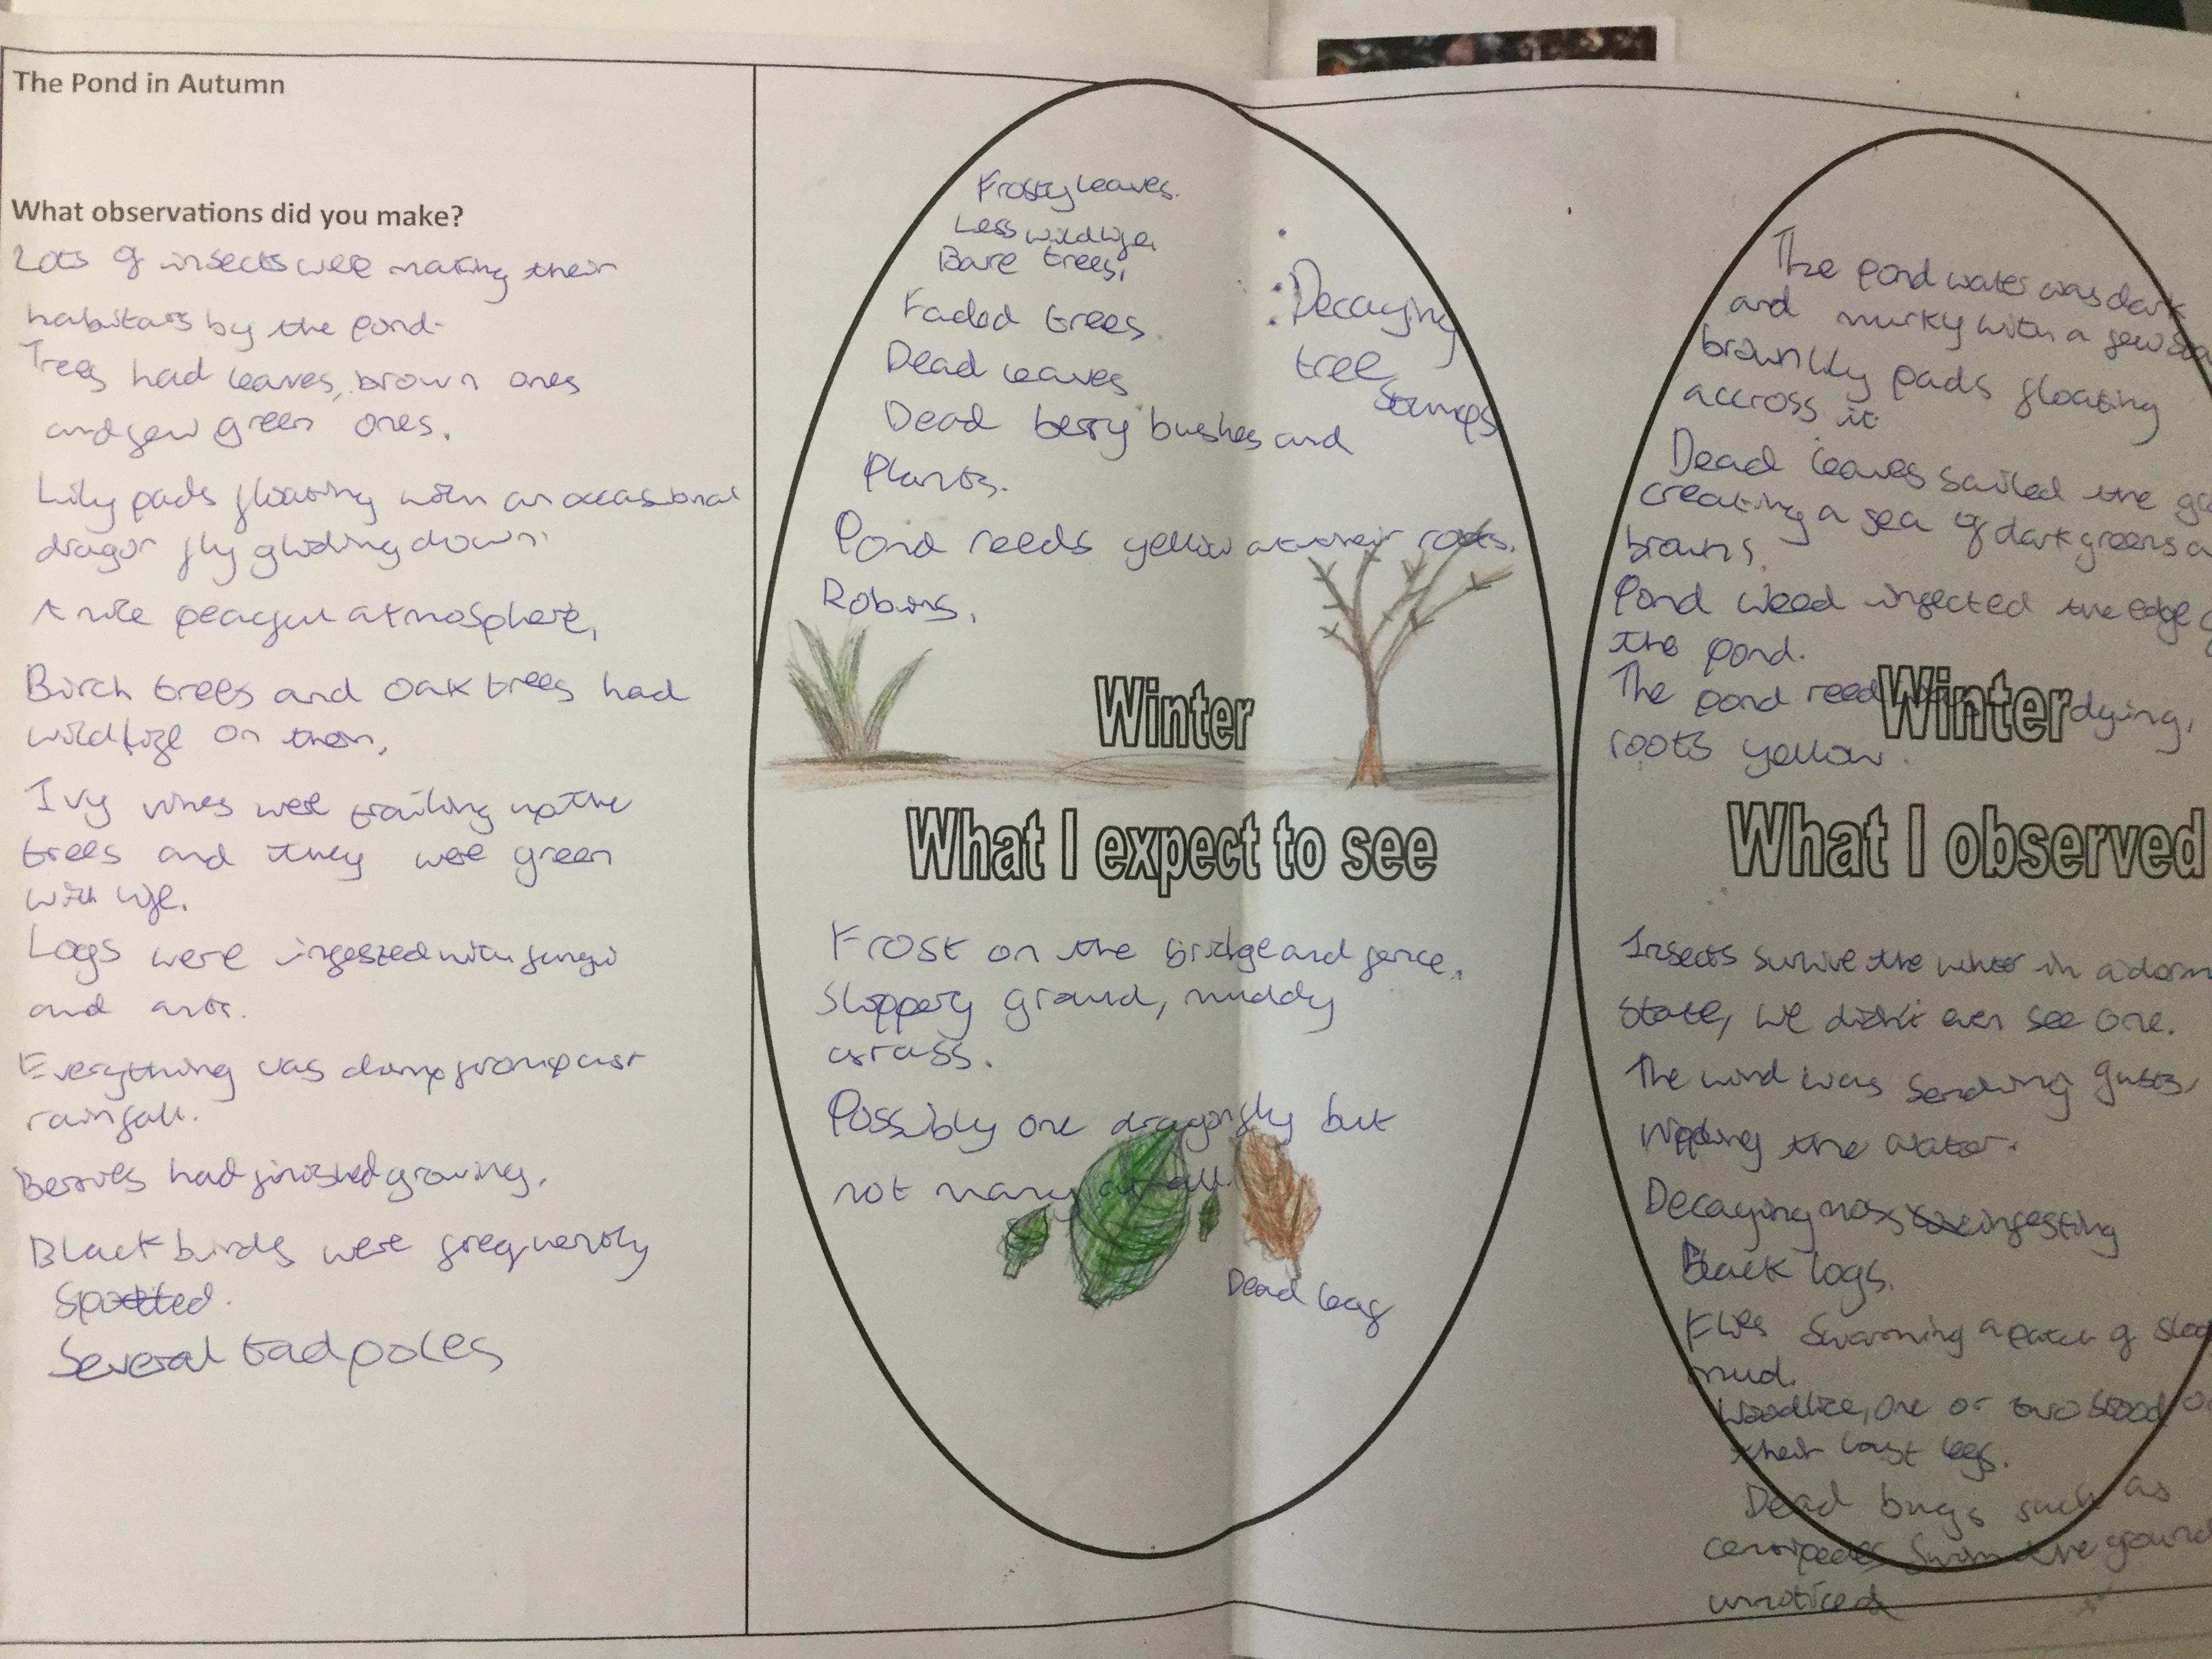 The Pond in Autumn
What observations did you make?
Lots of insects were making their
habitats by the pond.
Trees had leaves, brown ones
and few green ones.
Lily pads floating with an occasional
dragon fly gliding down.
A nice peaceful atmosphere,
Birch trees and oak trees had
wildlife on them.
Ivy vines were trailing up the
trees and they were green
with life.
Logs were infested with fungi
and ants.
Everything was damp from past
rainfall.
Berries had finished growing.
Black birds were frequently
spotted.
Several tadpoles
Frosty leaves.
Less wildlife,
Bare trees,
Faded trees
Dead leaves
Dead berry bushes and
Plants.
Pond reeds yellow at their roots.
Robins.
Decaying
tree
stumps
Winter
What I expect to see
Frost on the bridge and fence.
Slippery ground, muddy
grass.
Possibly one dragonfly but
not many at all.
Dead leaf
The pond water was dark
and murky with a few
brown lily pads floating
accross it
Dead leaves sailed the
creating a sea of dark greens
browns.
Pond weed infected the edge
the pond.
The pond reed dying,
roots yellow.
Winter
What I observed
Insects survive the winter in a
state, we didn't even see one.
The wind was sending gusts,
rippling the water.
Decaying moss infesting
Black logs.
Flies swarming a patch of
mud.
Woodlice, one or two stood
their last legs.
Dead bugs such as
centipedes swim the ground
unnoticed